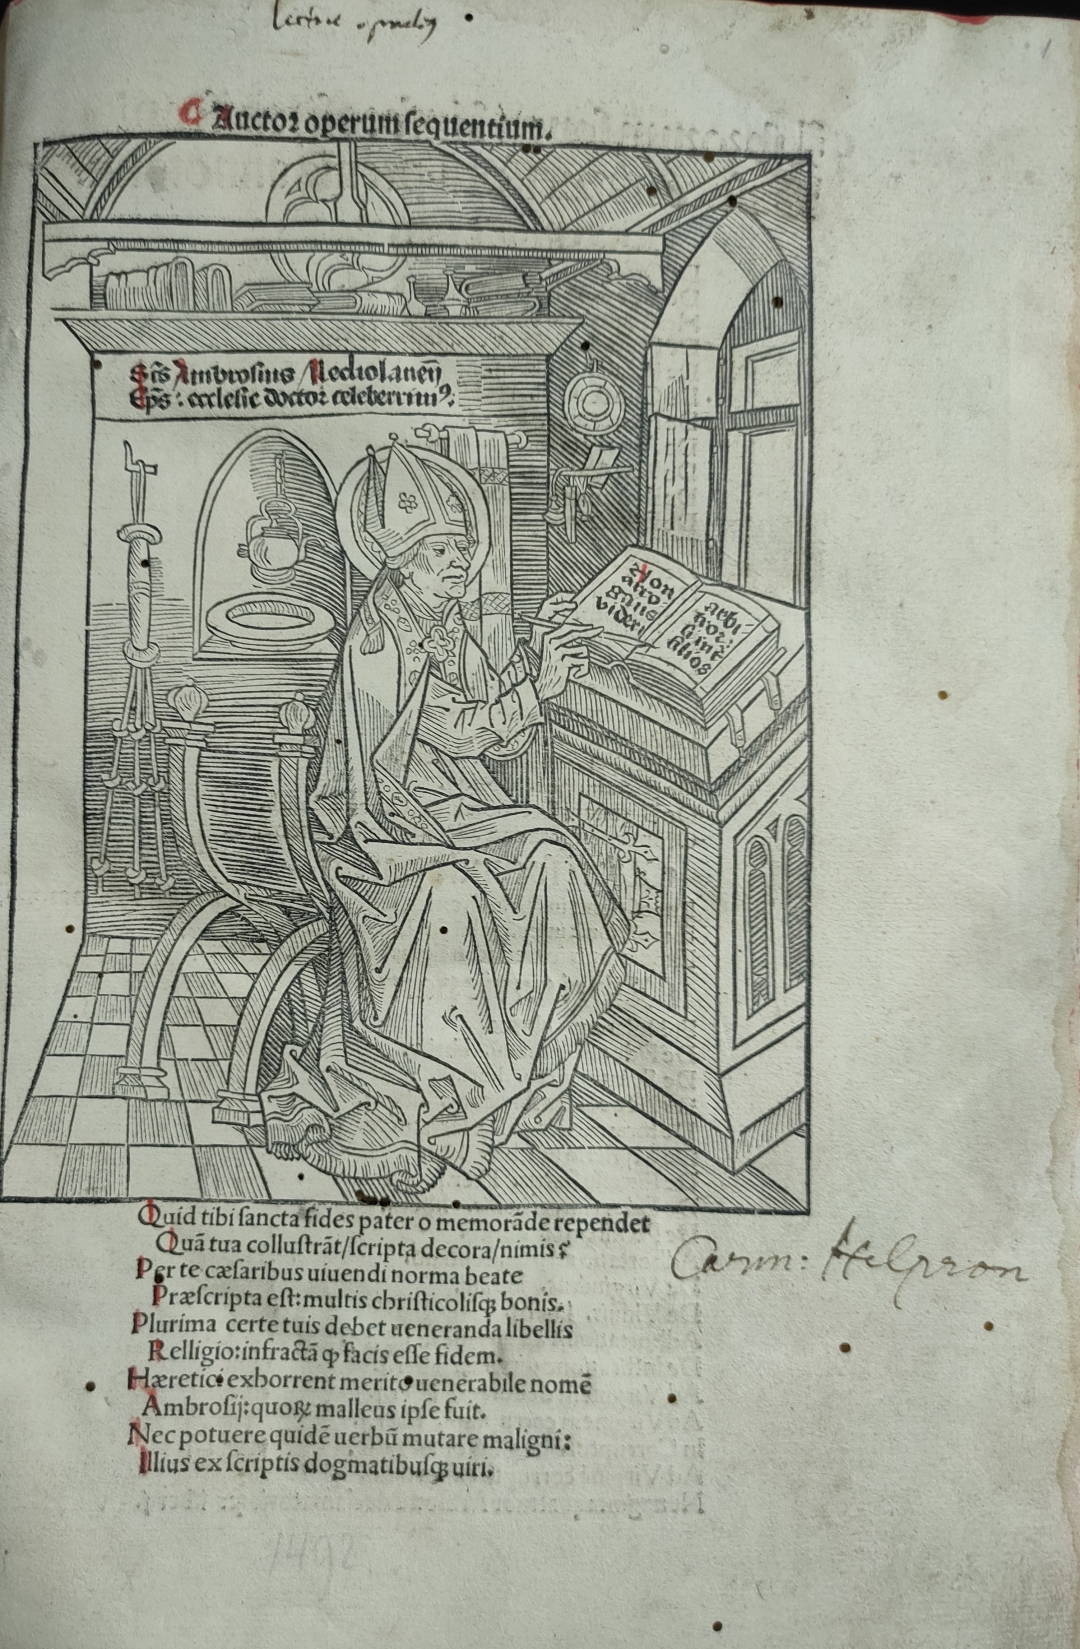 Auctoꝛ operum ſequentium.
Sc̄s Ambroſius Mediolaneñ
Ep̄s: eccleſie doctoꝛ celeberrimꝰ.
Non
arro
gans
videri
arbi
tror:
ſi int̄
filios
Quid tibi ſancta fides pater o memorāde rependet
Quā tua colluſtrāt/ſcripta decora/nimis?
Per te cæſaribus uiuendi norma beate
Præſcripta eſt: multis chriſticoliſqꝫ bonis.
Plurima certe tuis debet ueneranda libellis
Relligio: infractā ꝙ facis eſſe fidem.
Hæretici exhorrent merito uenerabile nomē
Ambroſij: quoꝝ malleus ipſe fuit.
Nec potuere quidē uerbū mutare maligni:
Illius ex ſcriptis dogmatibuſqꝫ uiri.
1492